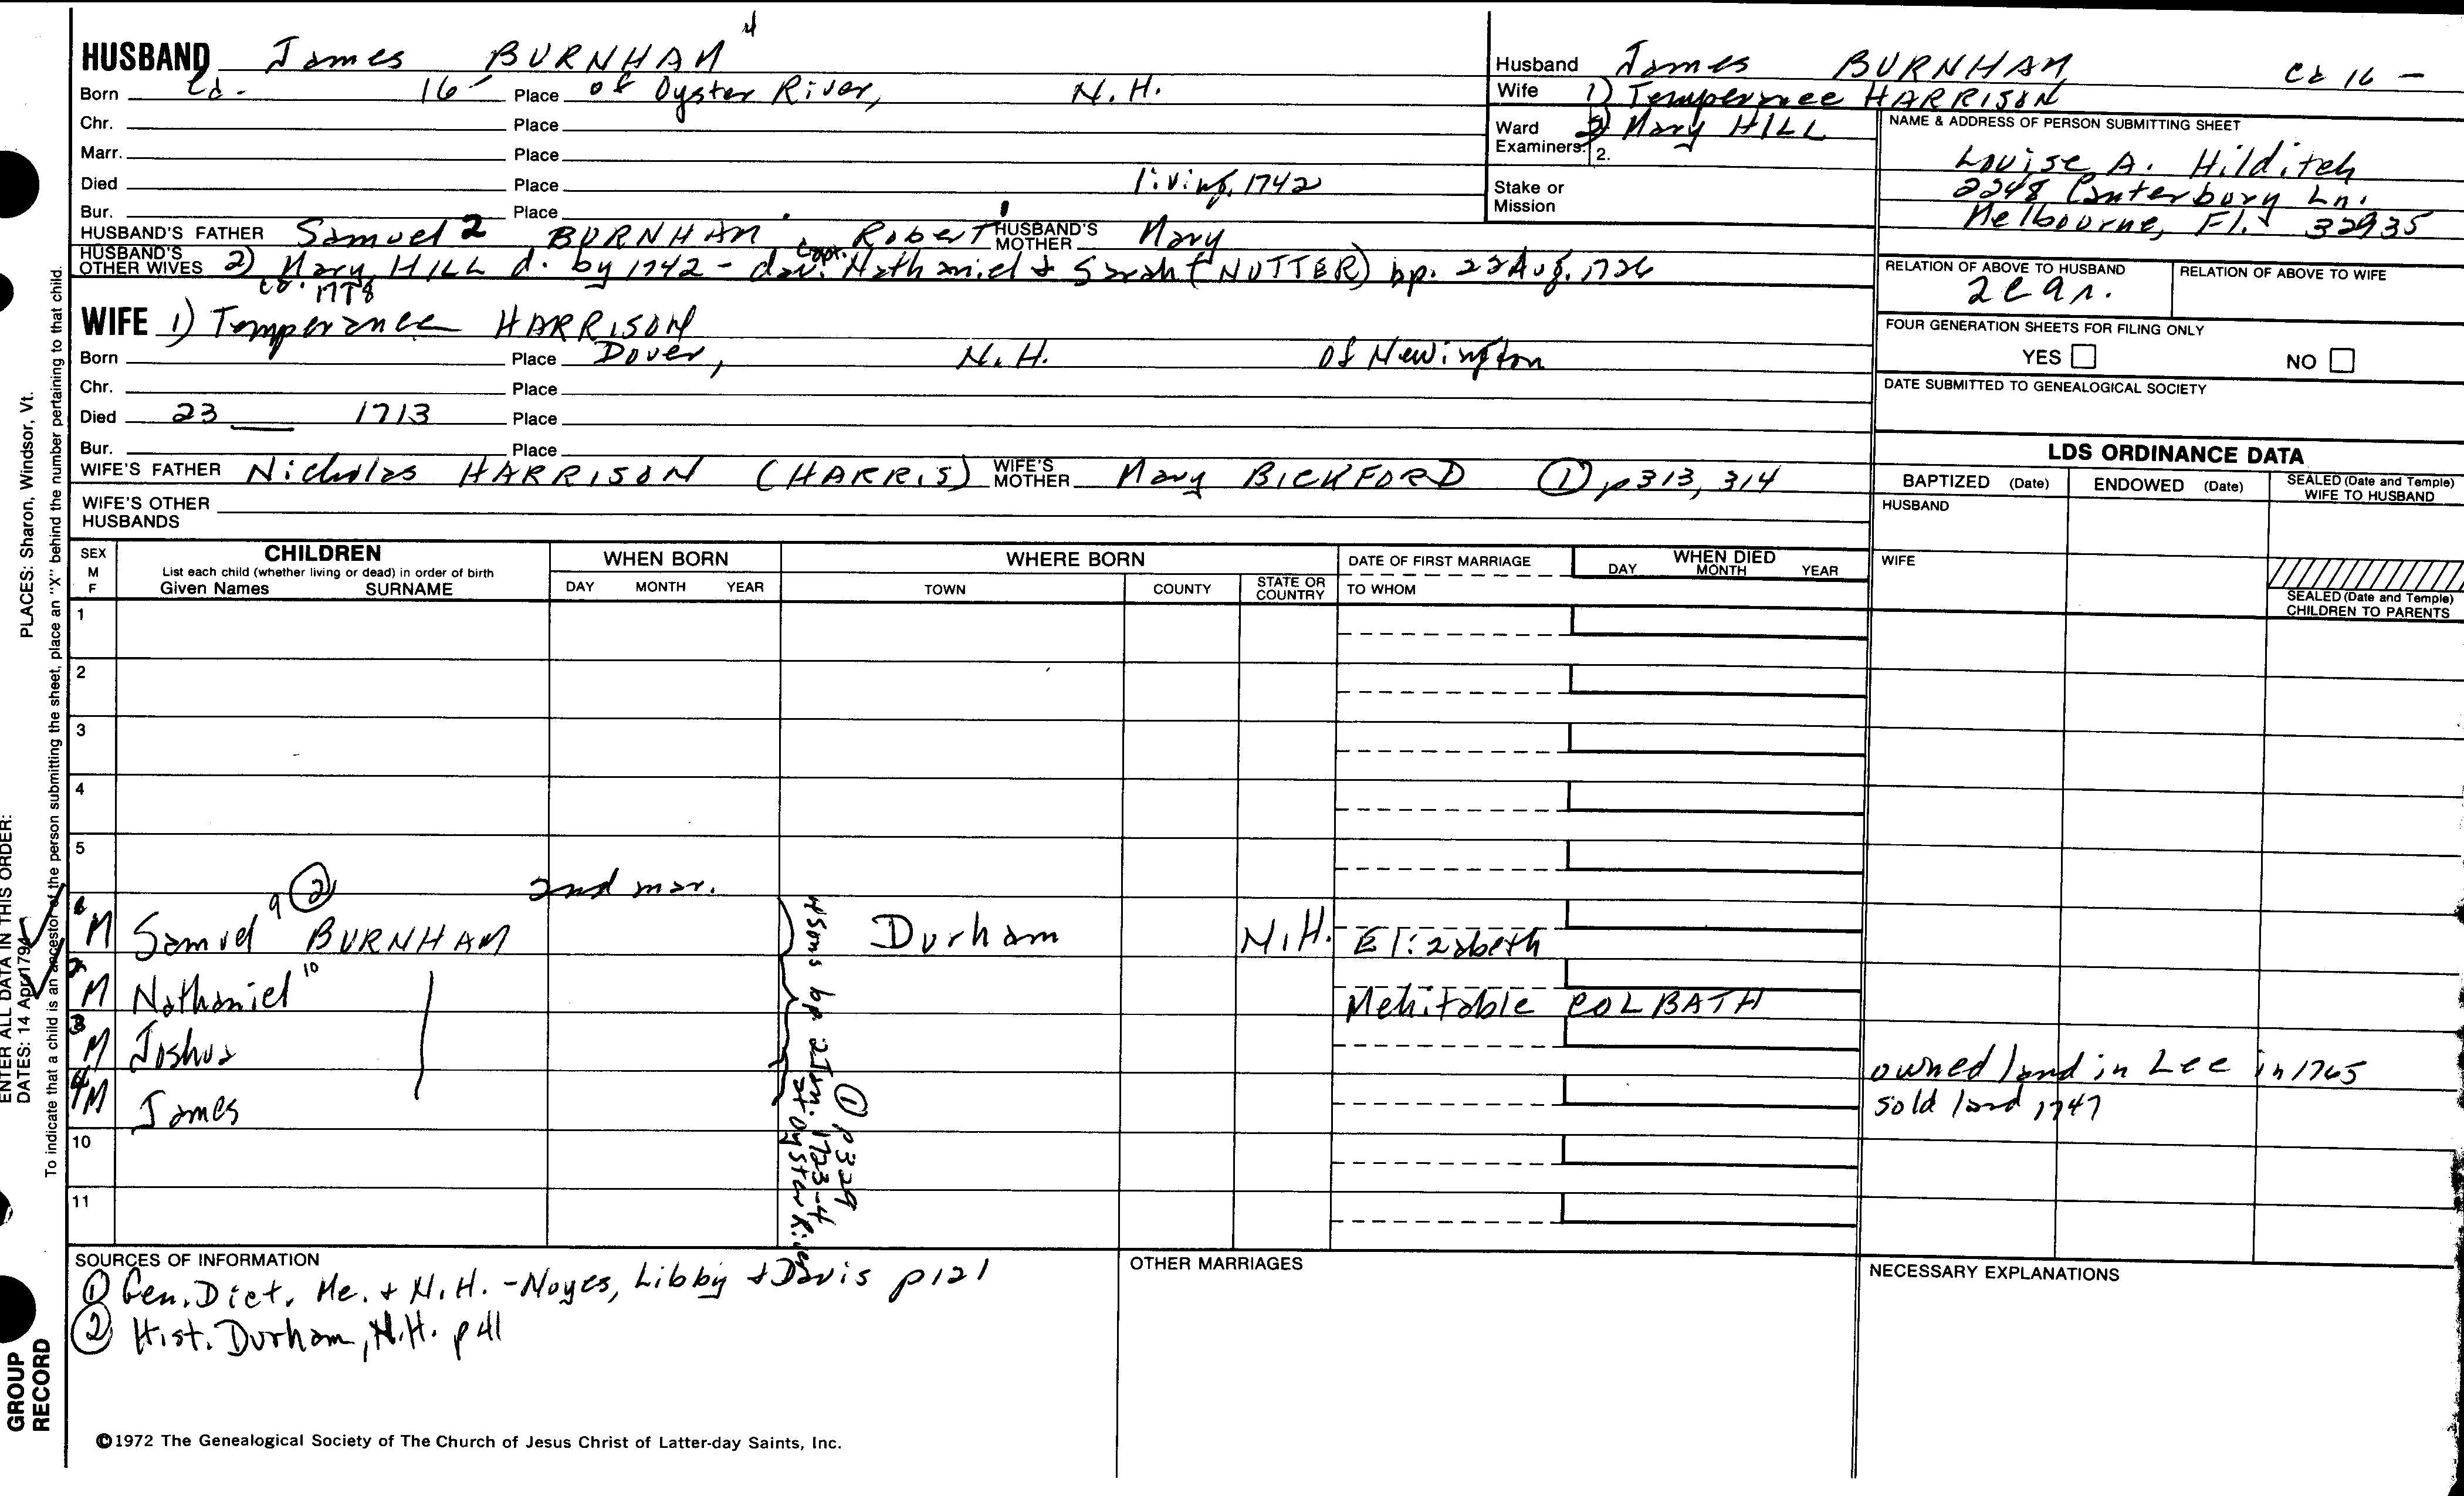 HUSBAND James BURNHAM 4
Born Ca. 16- Place of Oyster River, N.H.
Chr. Place
Marr. Place
Died Place living 1742
Bur. Place
HUSBAND'S FATHER Samuel 2 BURNHAM, Robert 1 HUSBAND'S MOTHER Mary
HUSBAND'S OTHER WIVES 2) Mary HILL d. by 1742 - dau. Capt. Nathaniel & Sarah (NUTTER) bp. 23 Aug. 1726
ca.
WIFE 1) Temperance HARRISON
Born Place Dover, N.H. of Newington
Chr. Place
Died 23 __ 1713 Place
Bur. Place
WIFE'S FATHER Nicholas HARRISON (HARRIS) WIFE'S MOTHER Mary BICKFORD ① p313, 314
WIFE'S OTHER HUSBANDS
Husband James BURNHAM ca 16 -
Wife 1) Temperance HARRISON
2) Mary HILL
Ward Examiners: 2.
Stake or Mission
NAME & ADDRESS OF PERSON SUBMITTING SHEET
Louise A. Hilditch
2248 Canterbury Ln.
Melbourne, Fl. 32935
RELATION OF ABOVE TO HUSBAND RELATION OF ABOVE TO WIFE
FOUR GENERATION SHEETS FOR FILING ONLY
YES NO
DATE SUBMITTED TO GENEALOGICAL SOCIETY
LDS ORDINANCE DATA
BAPTIZED (Date) ENDOWED (Date) SEALED (Date and Temple) WIFE TO HUSBAND
HUSBAND
WIFE
SEALED (Date and Temple) CHILDREN TO PARENTS
SEX M F CHILDREN WHEN BORN WHERE BORN DATE OF FIRST MARRIAGE WHEN DIED
List each child (whether living or dead) in order of birth
Given Names SURNAME DAY MONTH YEAR TOWN COUNTY STATE OR COUNTRY TO WHOM DAY MONTH YEAR
1
2
3
4
5
② 2nd mar.
M Samuel 9 BURNHAM Durham N.H. Elizabeth
2 M Nathaniel 10 Mehitable COLBATH
3 M Joshua
owned land in Lee in 1765
4 M James
sold land 1747
10
11
4 sons bp. 2 Jan. 1723-4
at Oyster River
① p329
SOURCES OF INFORMATION
① Gen. Dict. Me. & N.H. - Noyes, Libby & Davis p121
② Hist. Durham, N.H. p41
OTHER MARRIAGES
NECESSARY EXPLANATIONS
©1972 The Genealogical Society of The Church of Jesus Christ of Latter-day Saints, Inc.
PLACES: Sharon, Windsor, Vt.
ENTER ALL DATA IN THIS ORDER:
DATES: 14 Apr 1794
To indicate that a child is an ancestor of the person submitting the sheet, place an "X" behind the number pertaining to that child.
GROUP RECORD